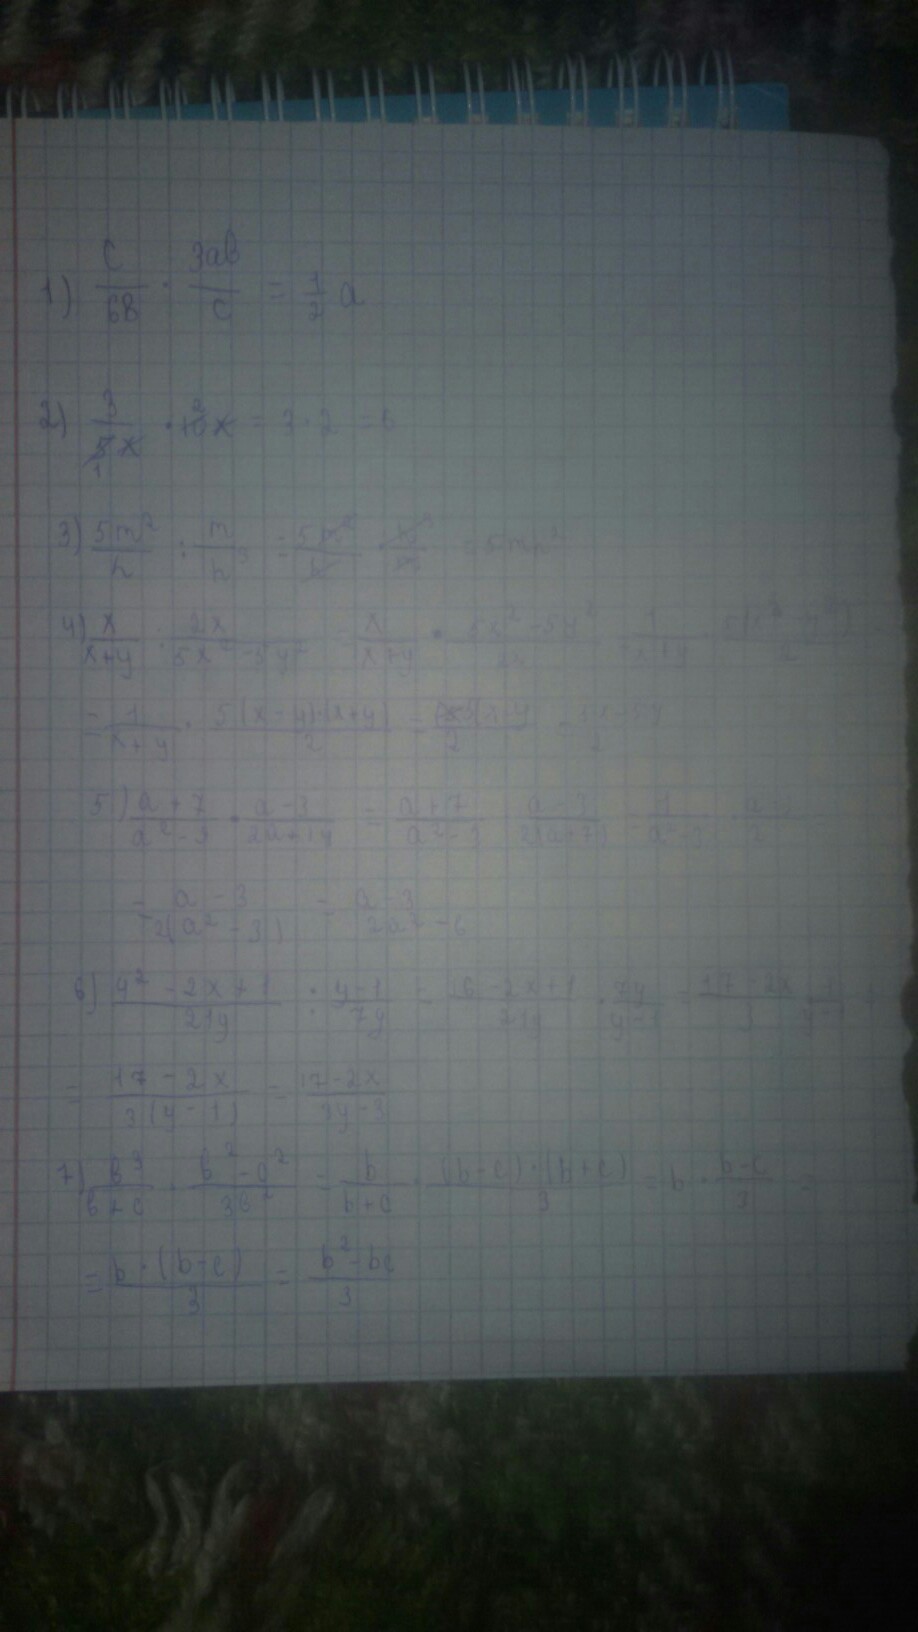 1) c/6в · 3ab/c = 1/2 a
2) 3/5x · 10x = 3 · 2 = 6
3) 5m²/n : m/n³ = 5m²/n · n³/m = 5mn²
4) x/x+y : 2x/5x²-5y² = x/x+y · 5x²-5y²/2x = 1/x+y · 5(x²-y²)/2 =
= 1/x+y · 5(x-y)·(x+y)/2 = 5(x-y)/2 = 5x-5y/2
5) a+7/a²-3 · a-3/2a+14 = a+7/a²-3 · a-3/2(a+7) = 1/a²-3 · a-3/2 =
= a-3/2(a²-3) = a-3/2a²-6
6) 4²-2x+1/21y : y-1/7y = 16-2x+1/21y · 7y/y-1 = 17-2x/3 · 1/y-1 =
= 17-2x/3(y-1) = 17-2x/3y-3
7) в³/в+c · в²-c²/3в² = b/b+c · (b-c)·(b+c)/3 = b · b-c/3 =
= b·(b-c)/3 = b²-bc/3